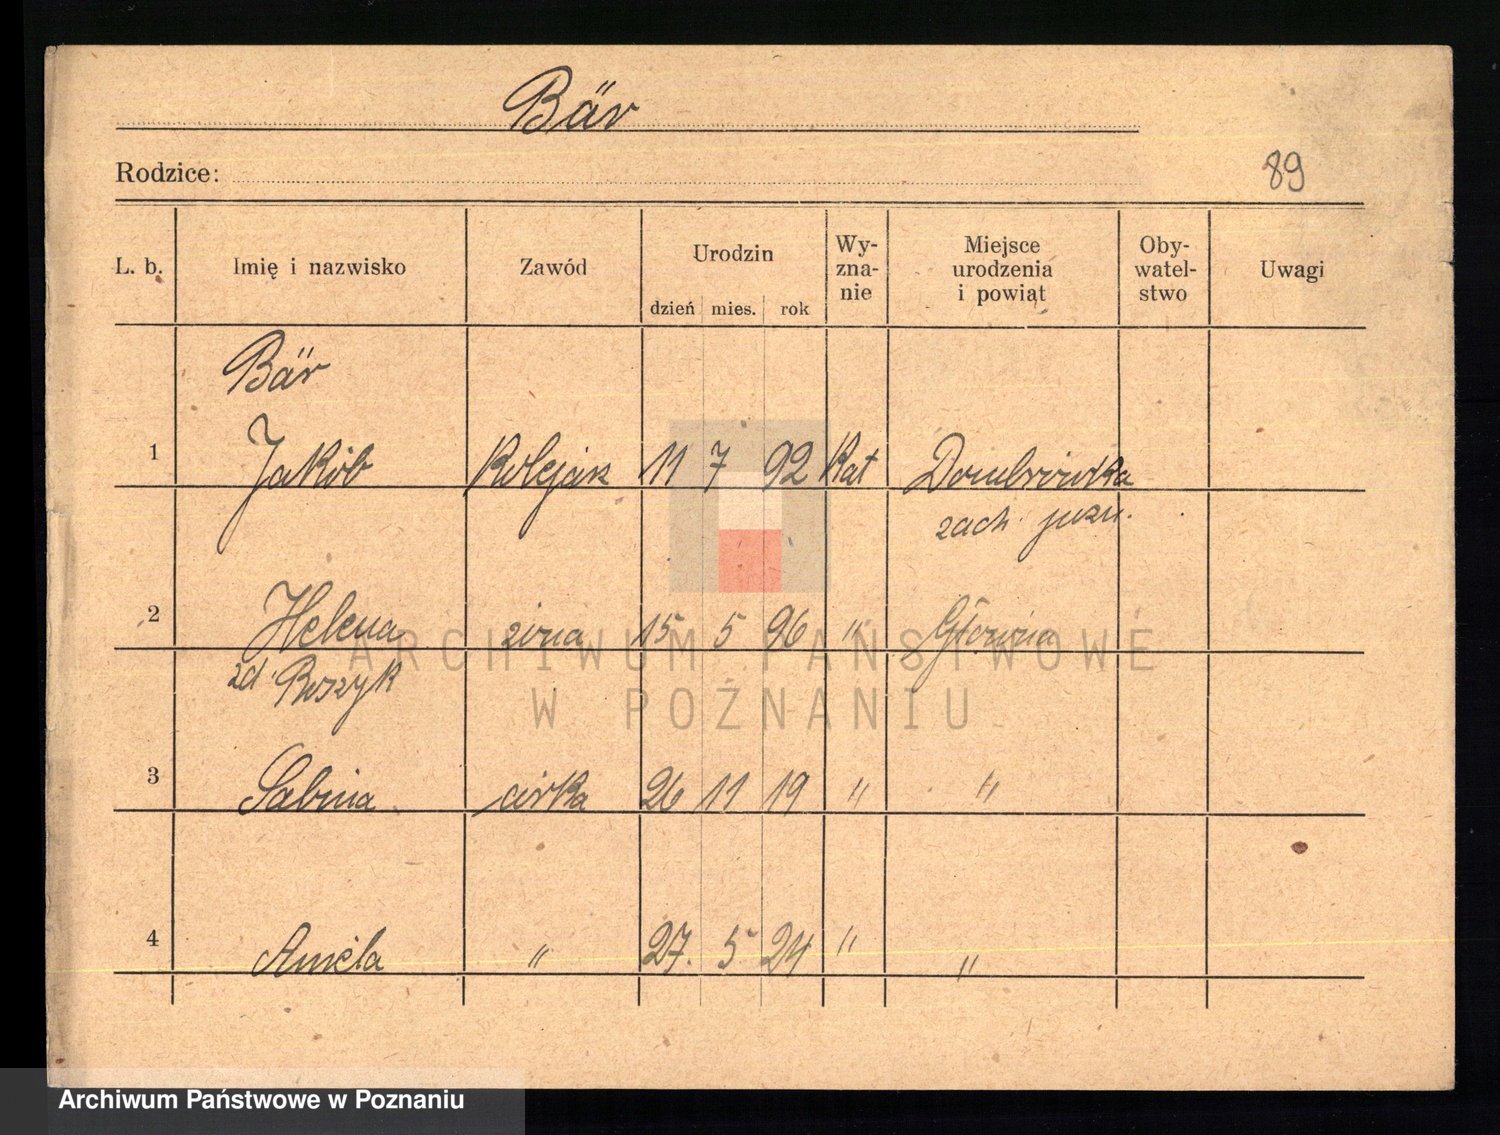 Bär
Rodzice:
89
L. b. Imię i nazwisko Zawód Urodzin dzień mies. rok Wy-zna-nie Miejsce urodzenia i powiąt Oby-watel-stwo Uwagi
Bär
1 Jakób Kolejarz 11 7 92 Kat Dombrówka
zach.
2 Helena żona 15 5 96 " Główna
zd.
3 Sabina córka 26 11 19 " "
4 Aniela " 27. 5 24 " "
ARCHIWUM PAŃSTWOWE
W POZNANIU
Archiwum Państwowe w Poznaniu